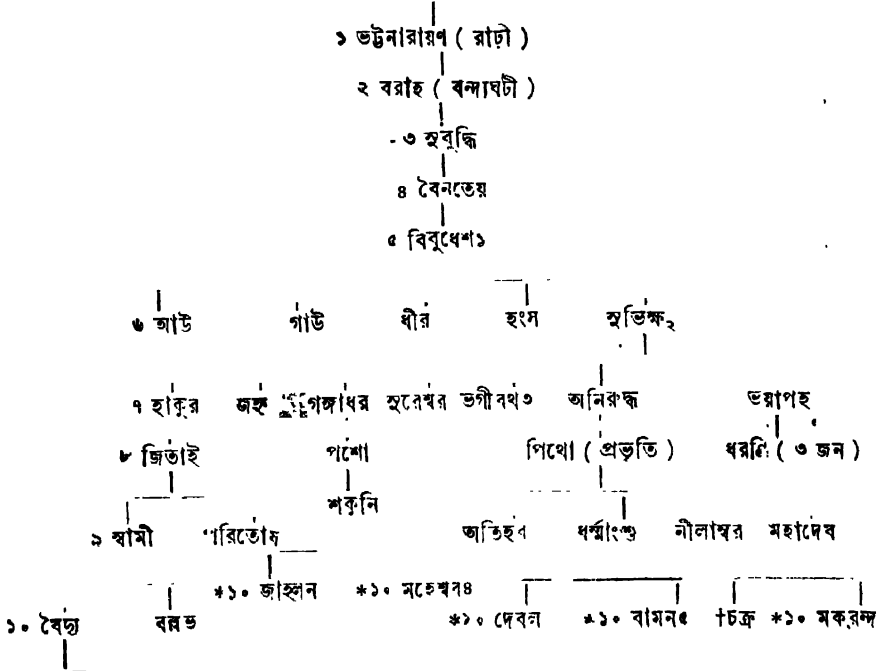 ১ ভট্টনারায়ণ ( রাঢ়ী )
২ বরাহ ( বন্দ্যঘটী )
৩ সুবুদ্ধি
৪ বৈনতেয়
৫ বিবুধেশ১
৬ আউ গাউ ধীর হংস সুভিক্ষ২
৭ হাকুর জহ্নু গঙ্গাধর সুরেশ্বর ভগীরথ৩ অনিরুদ্ধ ভয়াপহ
৮ জিতাই পশো পিথো ( প্রভৃতি ) ধরণি ( ৩ জন )
শকুনি
৯ স্বামী পরিতোষ অতিহব ধর্ম্মাংশু নীলাম্বর মহাদেব
*১০ জাহ্লন *১০ মহেশ্বর৪
১০ বৈদ্য বল্লভ *১০ দেবল *১০ বামন৫ †চক্র *১০ মকরন্দ